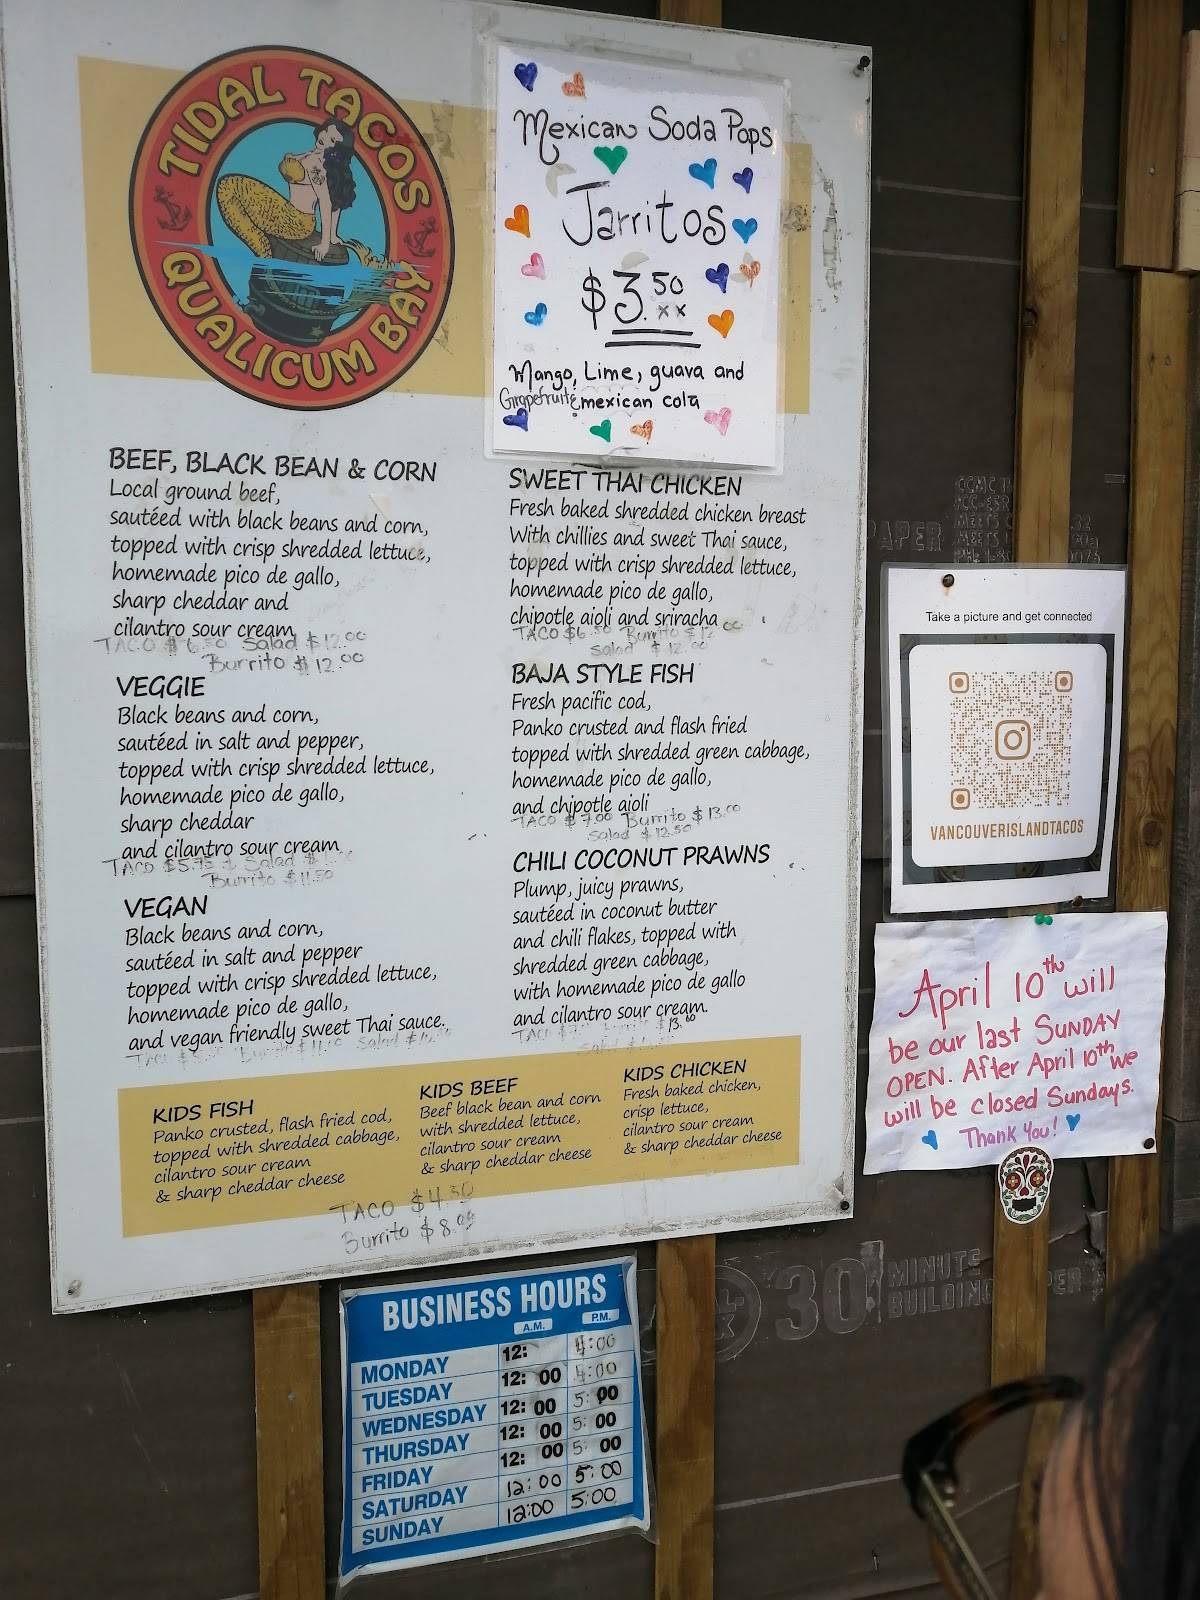 TIDAL TACOS
QUALICUM BAY
Mexican Soda Pops
Jarritos
$3.50
xx
Mango, Lime, guava and
Grapefruit & mexican cola
BEEF, BLACK BEAN & CORN
Local ground beef,
sautéed with black beans and corn,
topped with crisp shredded lettuce,
homemade pico de gallo,
sharp cheddar and
cilantro sour cream
TACO $6.50 Salad $12.00
Burrito $12.00
VEGGIE
Black beans and corn,
sautéed in salt and pepper,
topped with crisp shredded lettuce,
homemade pico de gallo,
sharp cheddar
and cilantro sour cream
TACO $5.75 Salad
Burrito $11.50
VEGAN
Black beans and corn,
sautéed in salt and pepper
topped with crisp shredded lettuce,
homemade pico de gallo,
and vegan friendly sweet Thai sauce.
SWEET THAI CHICKEN
Fresh baked shredded chicken breast
With chillies and sweet Thai sauce,
topped with crisp shredded lettuce,
homemade pico de gallo,
chipotle aioli and sriracha
TACO $6.50 Burrito $12.00
Salad $12.00
BAJA STYLE FISH
Fresh pacific cod,
Panko crusted and flash fried
topped with shredded green cabbage,
homemade pico de gallo,
and chipotle aioli
TACO $7.00 Burrito $13.00
Salad $12.50
CHILI COCONUT PRAWNS
Plump, juicy prawns,
sautéed in coconut butter
and chili flakes, topped with
shredded green cabbage,
with homemade pico de gallo
and cilantro sour cream.
KIDS FISH
Panko crusted, flash fried cod,
topped with shredded cabbage,
cilantro sour cream
& sharp cheddar cheese
KIDS BEEF
Beef black bean and corn
with shredded lettuce,
cilantro sour cream
& sharp cheddar cheese
KIDS CHICKEN
Fresh baked chicken,
crisp lettuce,
cilantro sour cream
& sharp cheddar cheese
TACO $4.50
Burrito $8.00
Take a picture and get connected
VANCOUVERISLANDTACOS
April 10th will
be our last SUNDAY
OPEN. After April 10th we
will be closed Sundays.
Thank You!
30 MINUTE
BUILDING PAPER
BUSINESS HOURS
A.M. P.M.
MONDAY 12: 4:00
TUESDAY 12:00 4:00
WEDNESDAY 12:00 5:00
THURSDAY 12:00 5:00
FRIDAY 12:00 5:00
SATURDAY 12:00 5:00
SUNDAY 12:00 5:00